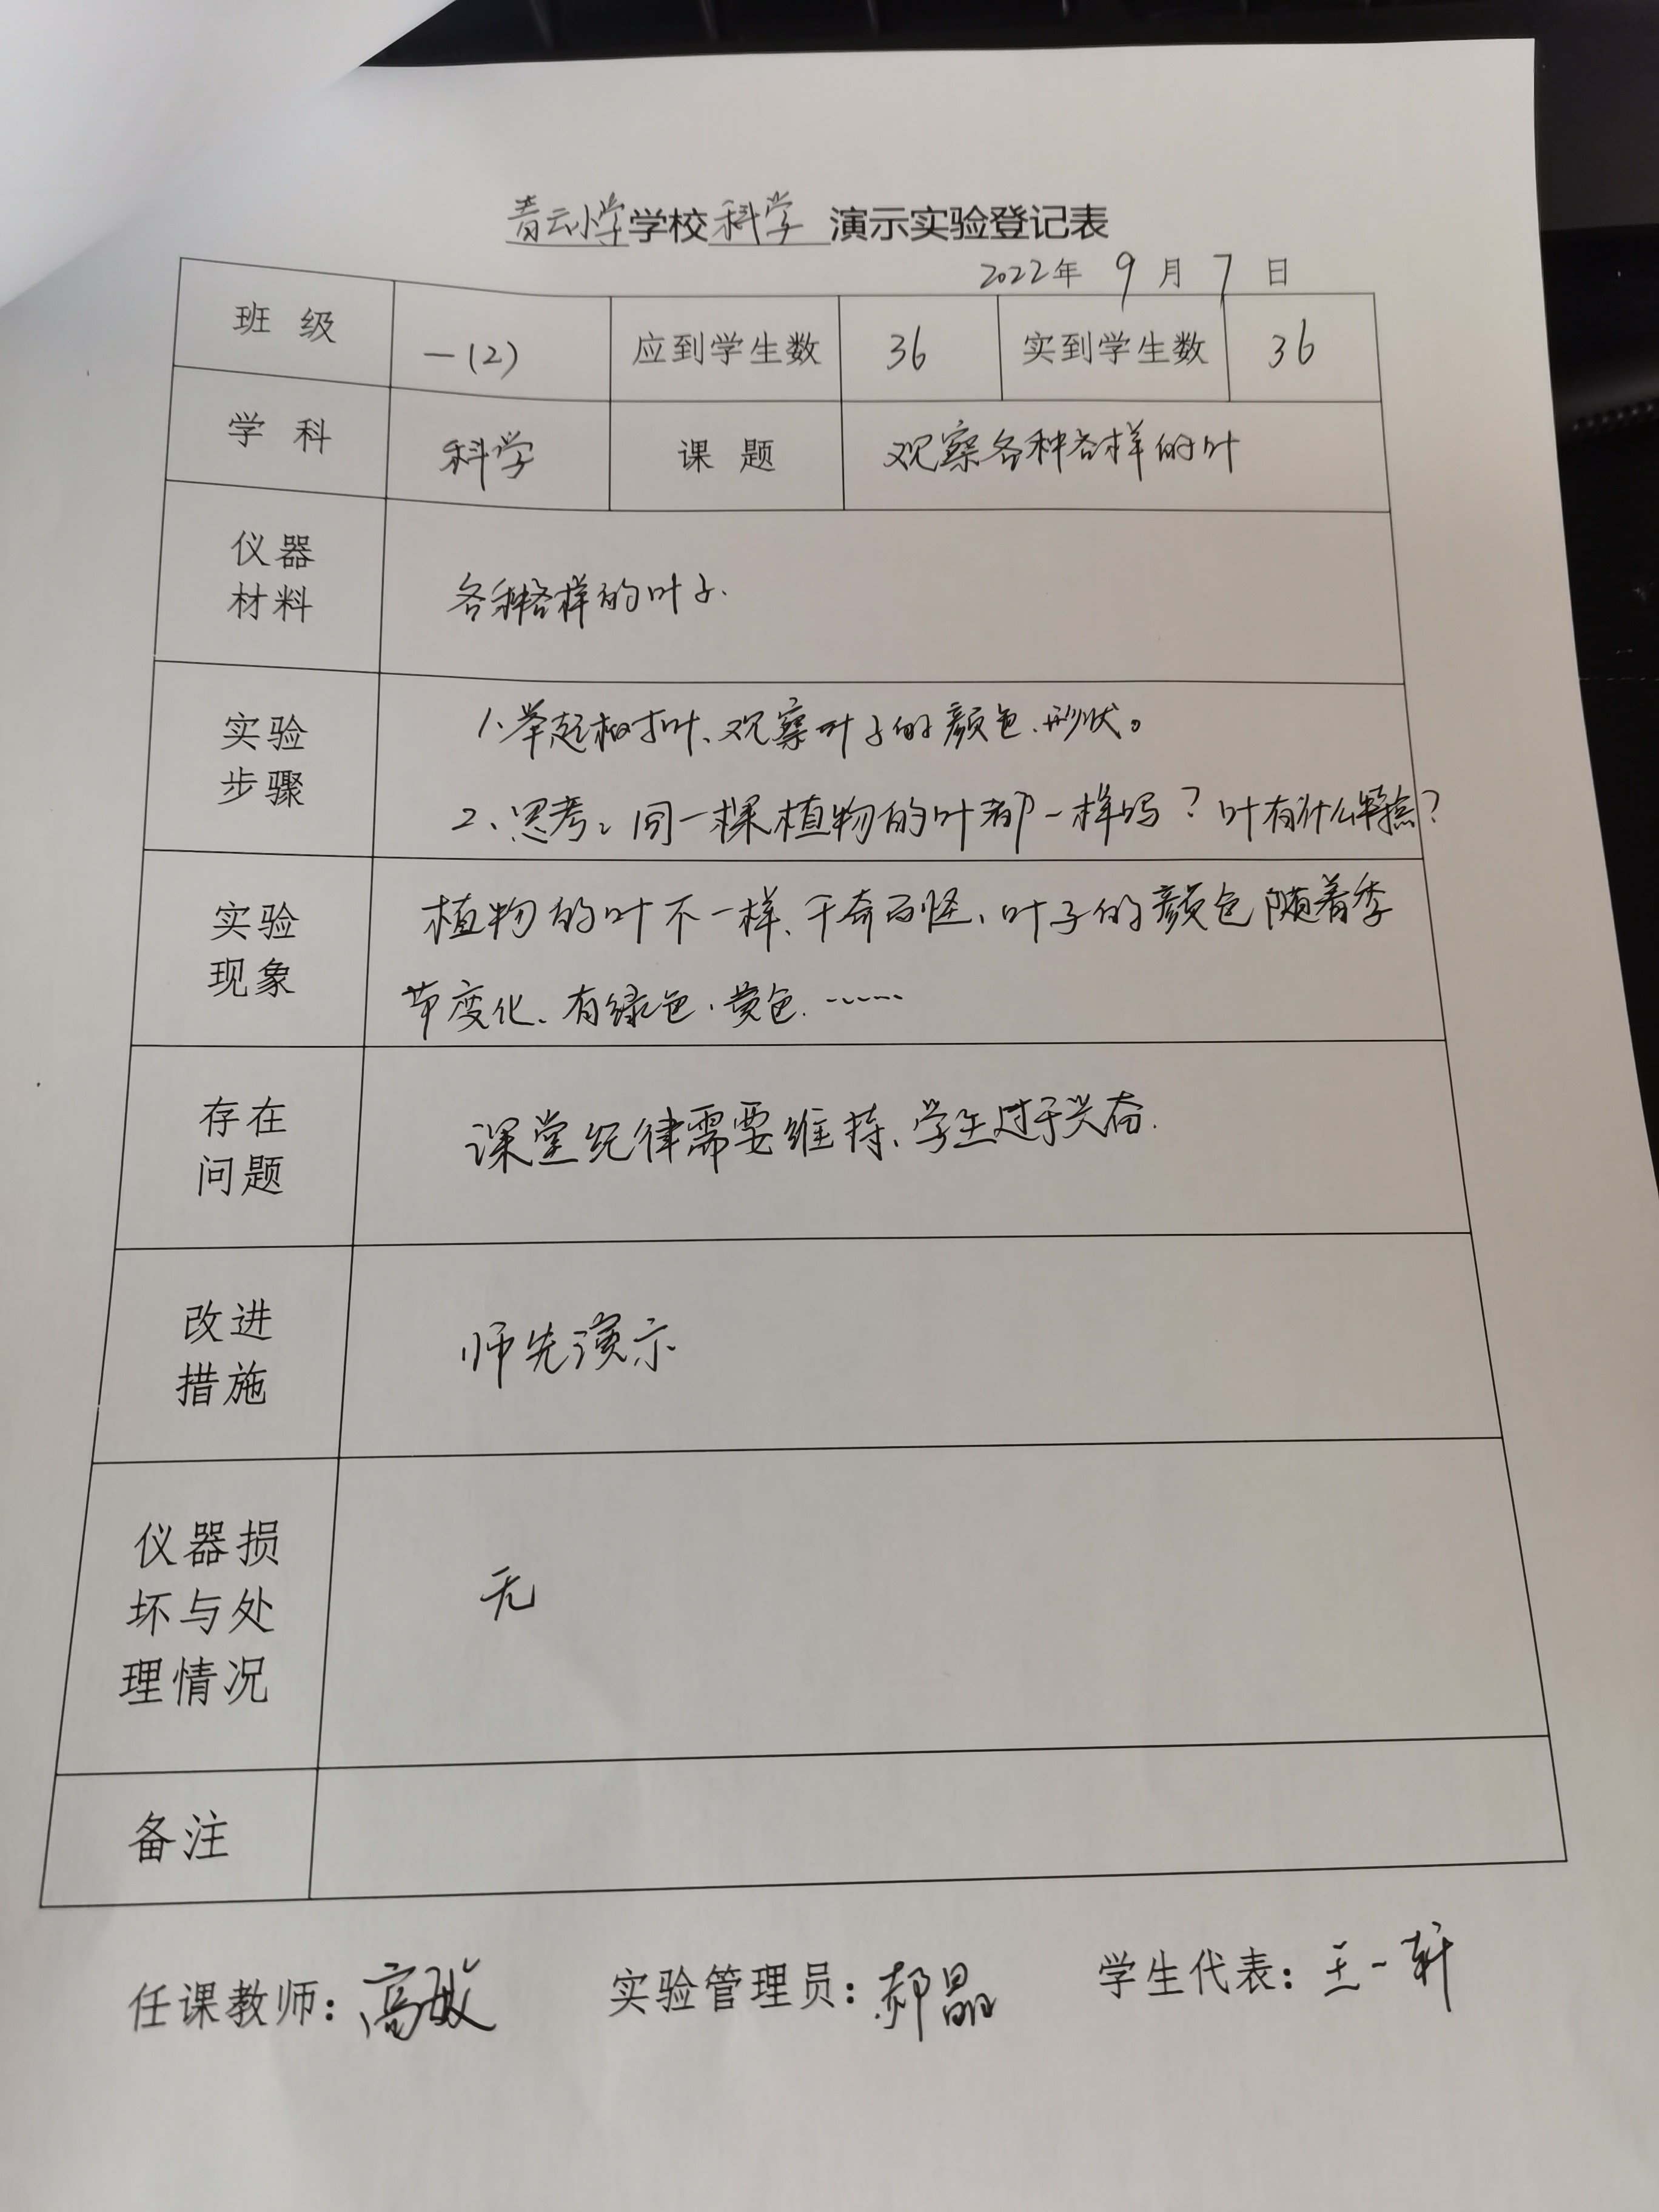 青云小学学校科学 演示实验登记表
2022年 9 月 7 日
班 级 一(2) 应到学生数 36 实到学生数 36
学 科 科学 课 题 观察各种各样的叶
仪器
材料
各种各样的叶子.
实验
步骤
1、举起树叶、观察叶子的颜色、形状。
2、思考:同一棵植物的叶都一样吗?叶有什么特点?
实验
现象
植物的叶不一样、千奇百怪、叶子的颜色随着季
节变化、有绿色、黄色. ……
存在
问题
课堂纪律需要维持、学生过于兴奋.
改进
措施
师先演示
仪器损
坏与处
理情况
无
备注
任课教师: 高 实验管理员: 郝晶 学生代表: 王一轩